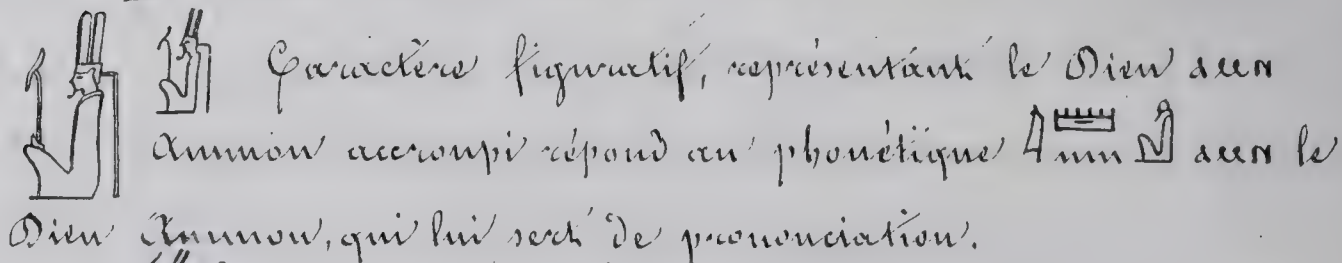 𓁩 𓁩 Caractère figuratif, représentant le Dieu ⲁⲙⲛ
Ammon accroupi répond au phonétique 𓇋𓏠𓈖𓀭 ⲁⲙⲛ le
Dieu Ammon, qui lui sert de prononciation.